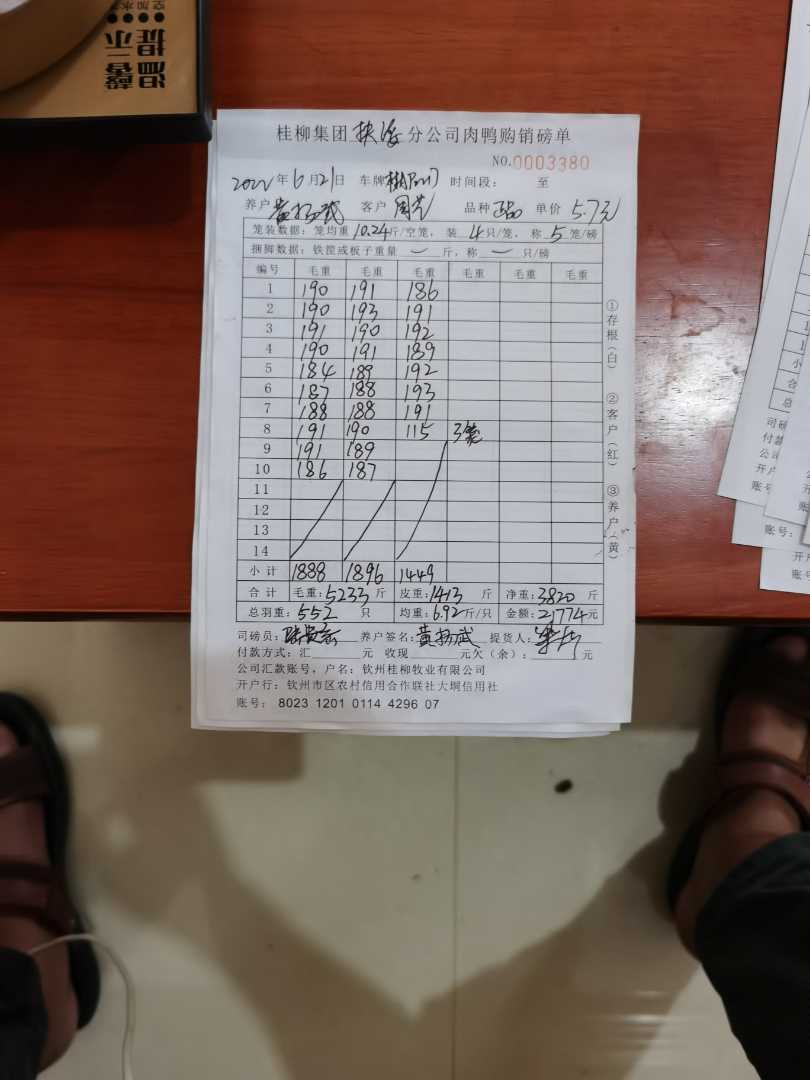 温馨提示
桂柳集团 分公司肉鸭购销磅单
NO.0003380
2022年6月21日 车牌 时间段: 至
养户 黄扬武 客户 周 品种 正品 单价 5.7元
笼装数据: 笼均重10.24斤/空笼, 装4只/笼, 称5笼/磅
捆脚数据: 铁筐或板子重量 一 斤, 称 一 只/磅
编号 毛重 毛重 毛重 毛重 毛重 毛重
1 190 191 186
2 190 193 191
3 191 190 192
4 190 191 189
5 184 189 192
6 187 188 193
7 188 188 191
8 191 190 115 3笼
9 191 189
10 186 187
11
12
13
14
小计 1888 1896 1449
合计 毛重:5233斤 皮重:1413斤 净重:3820斤
总羽重:552只 均重:6.92斤/只 金额:21774元
司磅员: 养户签名:黄扬武 提货人:
付款方式:汇 元 收现 元欠(余): 元
公司汇款账号, 户名: 钦州桂柳牧业有限公司
开户行: 钦州市区农村信用合作联社大垌信用社
账号: 8023 1201 0114 4296 07
①存根(白) ②客户(红) ③养户(黄)